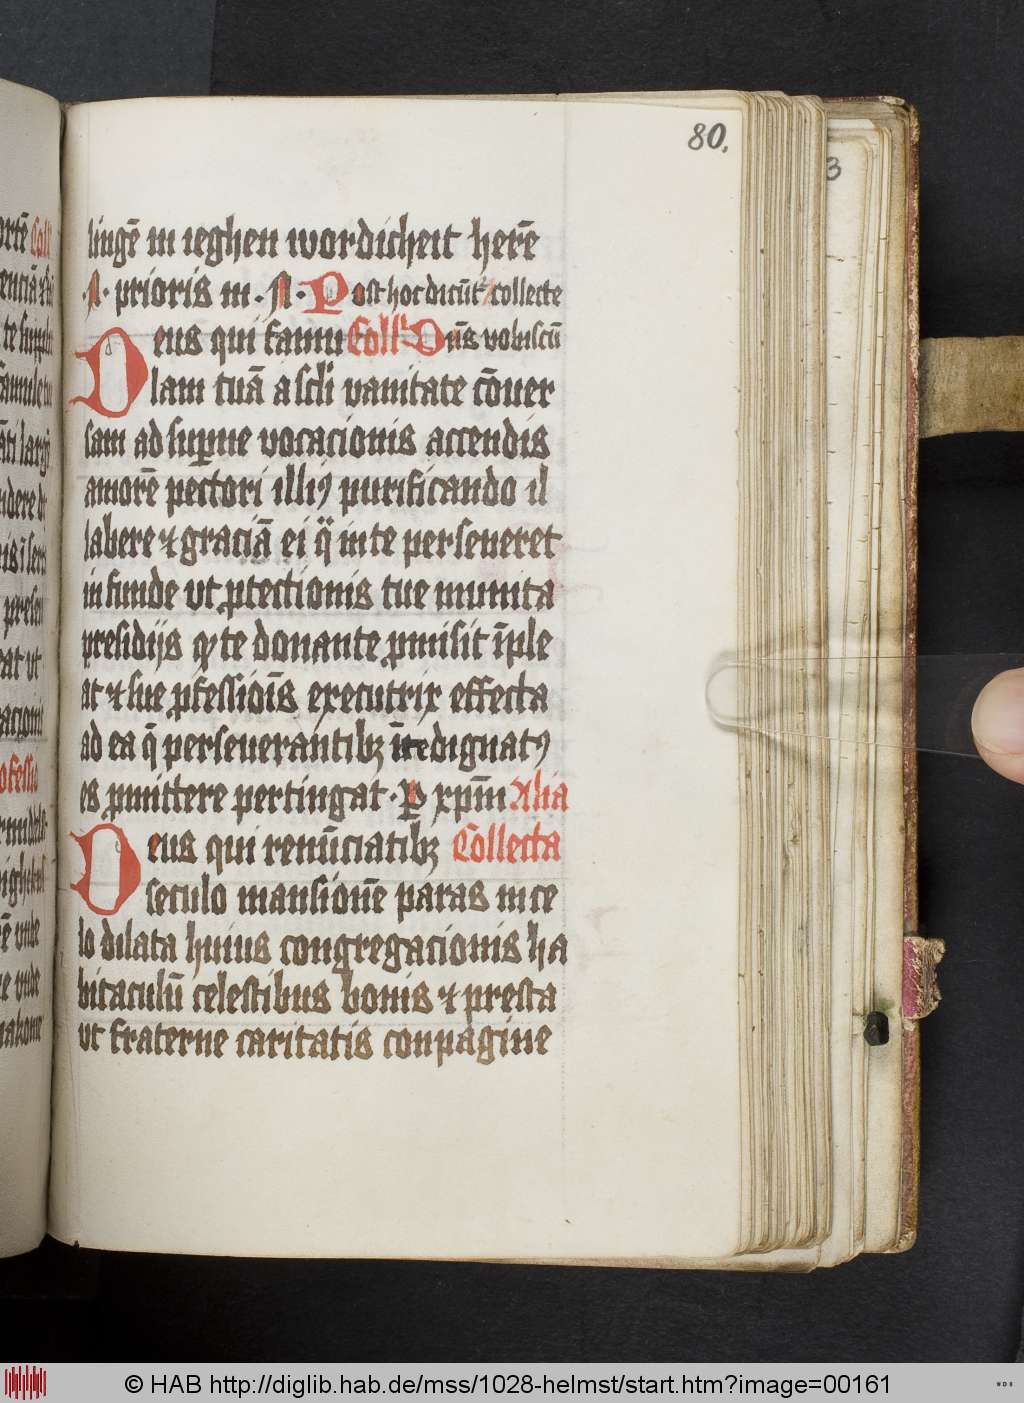 80.
3
lingē in ieghen wordicheit herē
·N· prioris in ·N· Post hoc dicūt collecte
Deus qui famu Coll' Dn̄s vobiscū
lam tuā a scl̄i vanitate cōuer
sam ad sup̱ne vocacionis accendis
amorē pectori illiꝯ purificando il
labere ⁊ graciā ei q̄ in te perseueret
infunde vt ꝓtectionis tue munita
presidijs qd̓ te donante ꝓmisit īple
at ⁊ sue ꝓfessiōis executrix effecta
ad ea q̄ perseuerantibꝫ ī te dignatꝯ
es ꝓmittere pertingat · P xp̄m Alia
Deus qui renūciatibꝫ Collecta
seculo mansionē paras in ce
lo dilata huius congregacionis ha
bitaculū celestibus bonis ⁊ presta
vt fraterne caritatis conpagine
© HAB http://diglib.hab.de/mss/1028-helmst/start.htm?image=00161